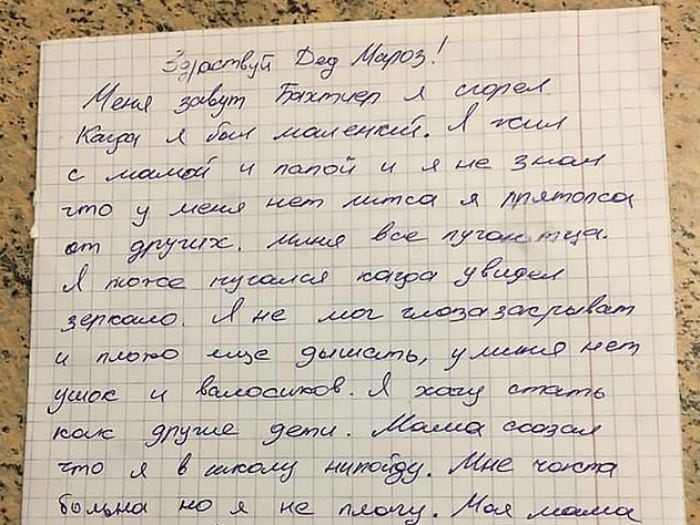 Здраствуй Дед Мароз!
Меня завут Бахтиер я сгорел
Кагда я был маленкий. Я жил
с мамой и папой и я не знал
что у меня нет литса я прятолса
от других. миня все пугаютца.
Я тоже пугался кагда увидел
зеркало. Я не мог глоза закрыват
и плохо ище дышать, у миня нет
ушок и валосиков. Я хачу стать
как другие дети. Мама сказал
что я в школу нипойду. Мне чаюта
больна но я не плачу. Моя мама